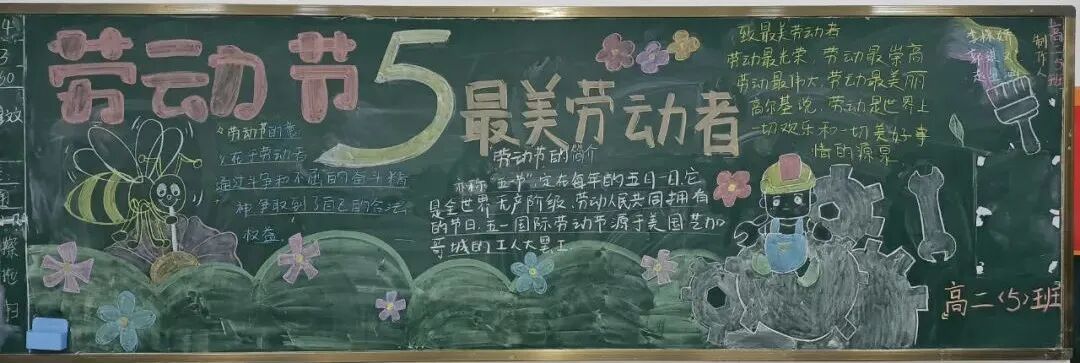 劳动节
5
最美劳动者
劳动节的意
义在于劳动者
通过斗争和不屈的奋斗精
神争取到了自己的合法
权益
劳动节的简介
亦称"五一节"定在每年的五月一日,它
是全世界无产阶级、劳动人民共同拥有
的节日.五一国际劳动节源于美国芝加
哥城的工人大罢工
致最美劳动者
劳动最光荣,劳动最崇高
劳动最伟大,劳动最美丽
高尔基说,劳动是世界上
一切欢乐和一切美好事
情的源泉
高二5班
制作人
高二(5)班